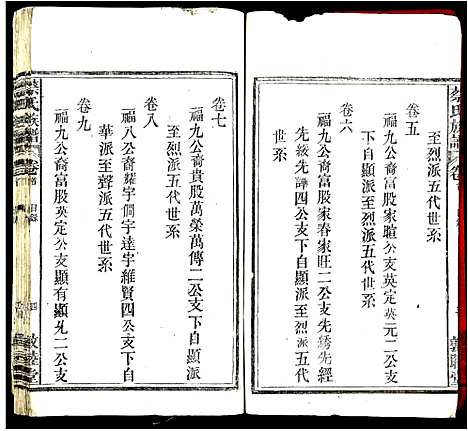 蔡氏族譜 卷首
敦睦堂
卷五
福九公裔富股家暄公支英定英元二公支
至烈派五代世系
卷六
福九公裔富股家春家旺二公支先綉先經
先綬先譁四公支下自顯至烈派五代
世系
卷七
福九公裔貴股萬榮萬傳二公支下自顯派
至烈派五代世系
卷八
福八公裔耀宇僩宇達宇維賢四公支下自
華派至聲派五代世系
卷九
福九公裔富股英定公支顯有顯允二公支
蔡氏族譜 卷首 目錄 四 敦睦堂